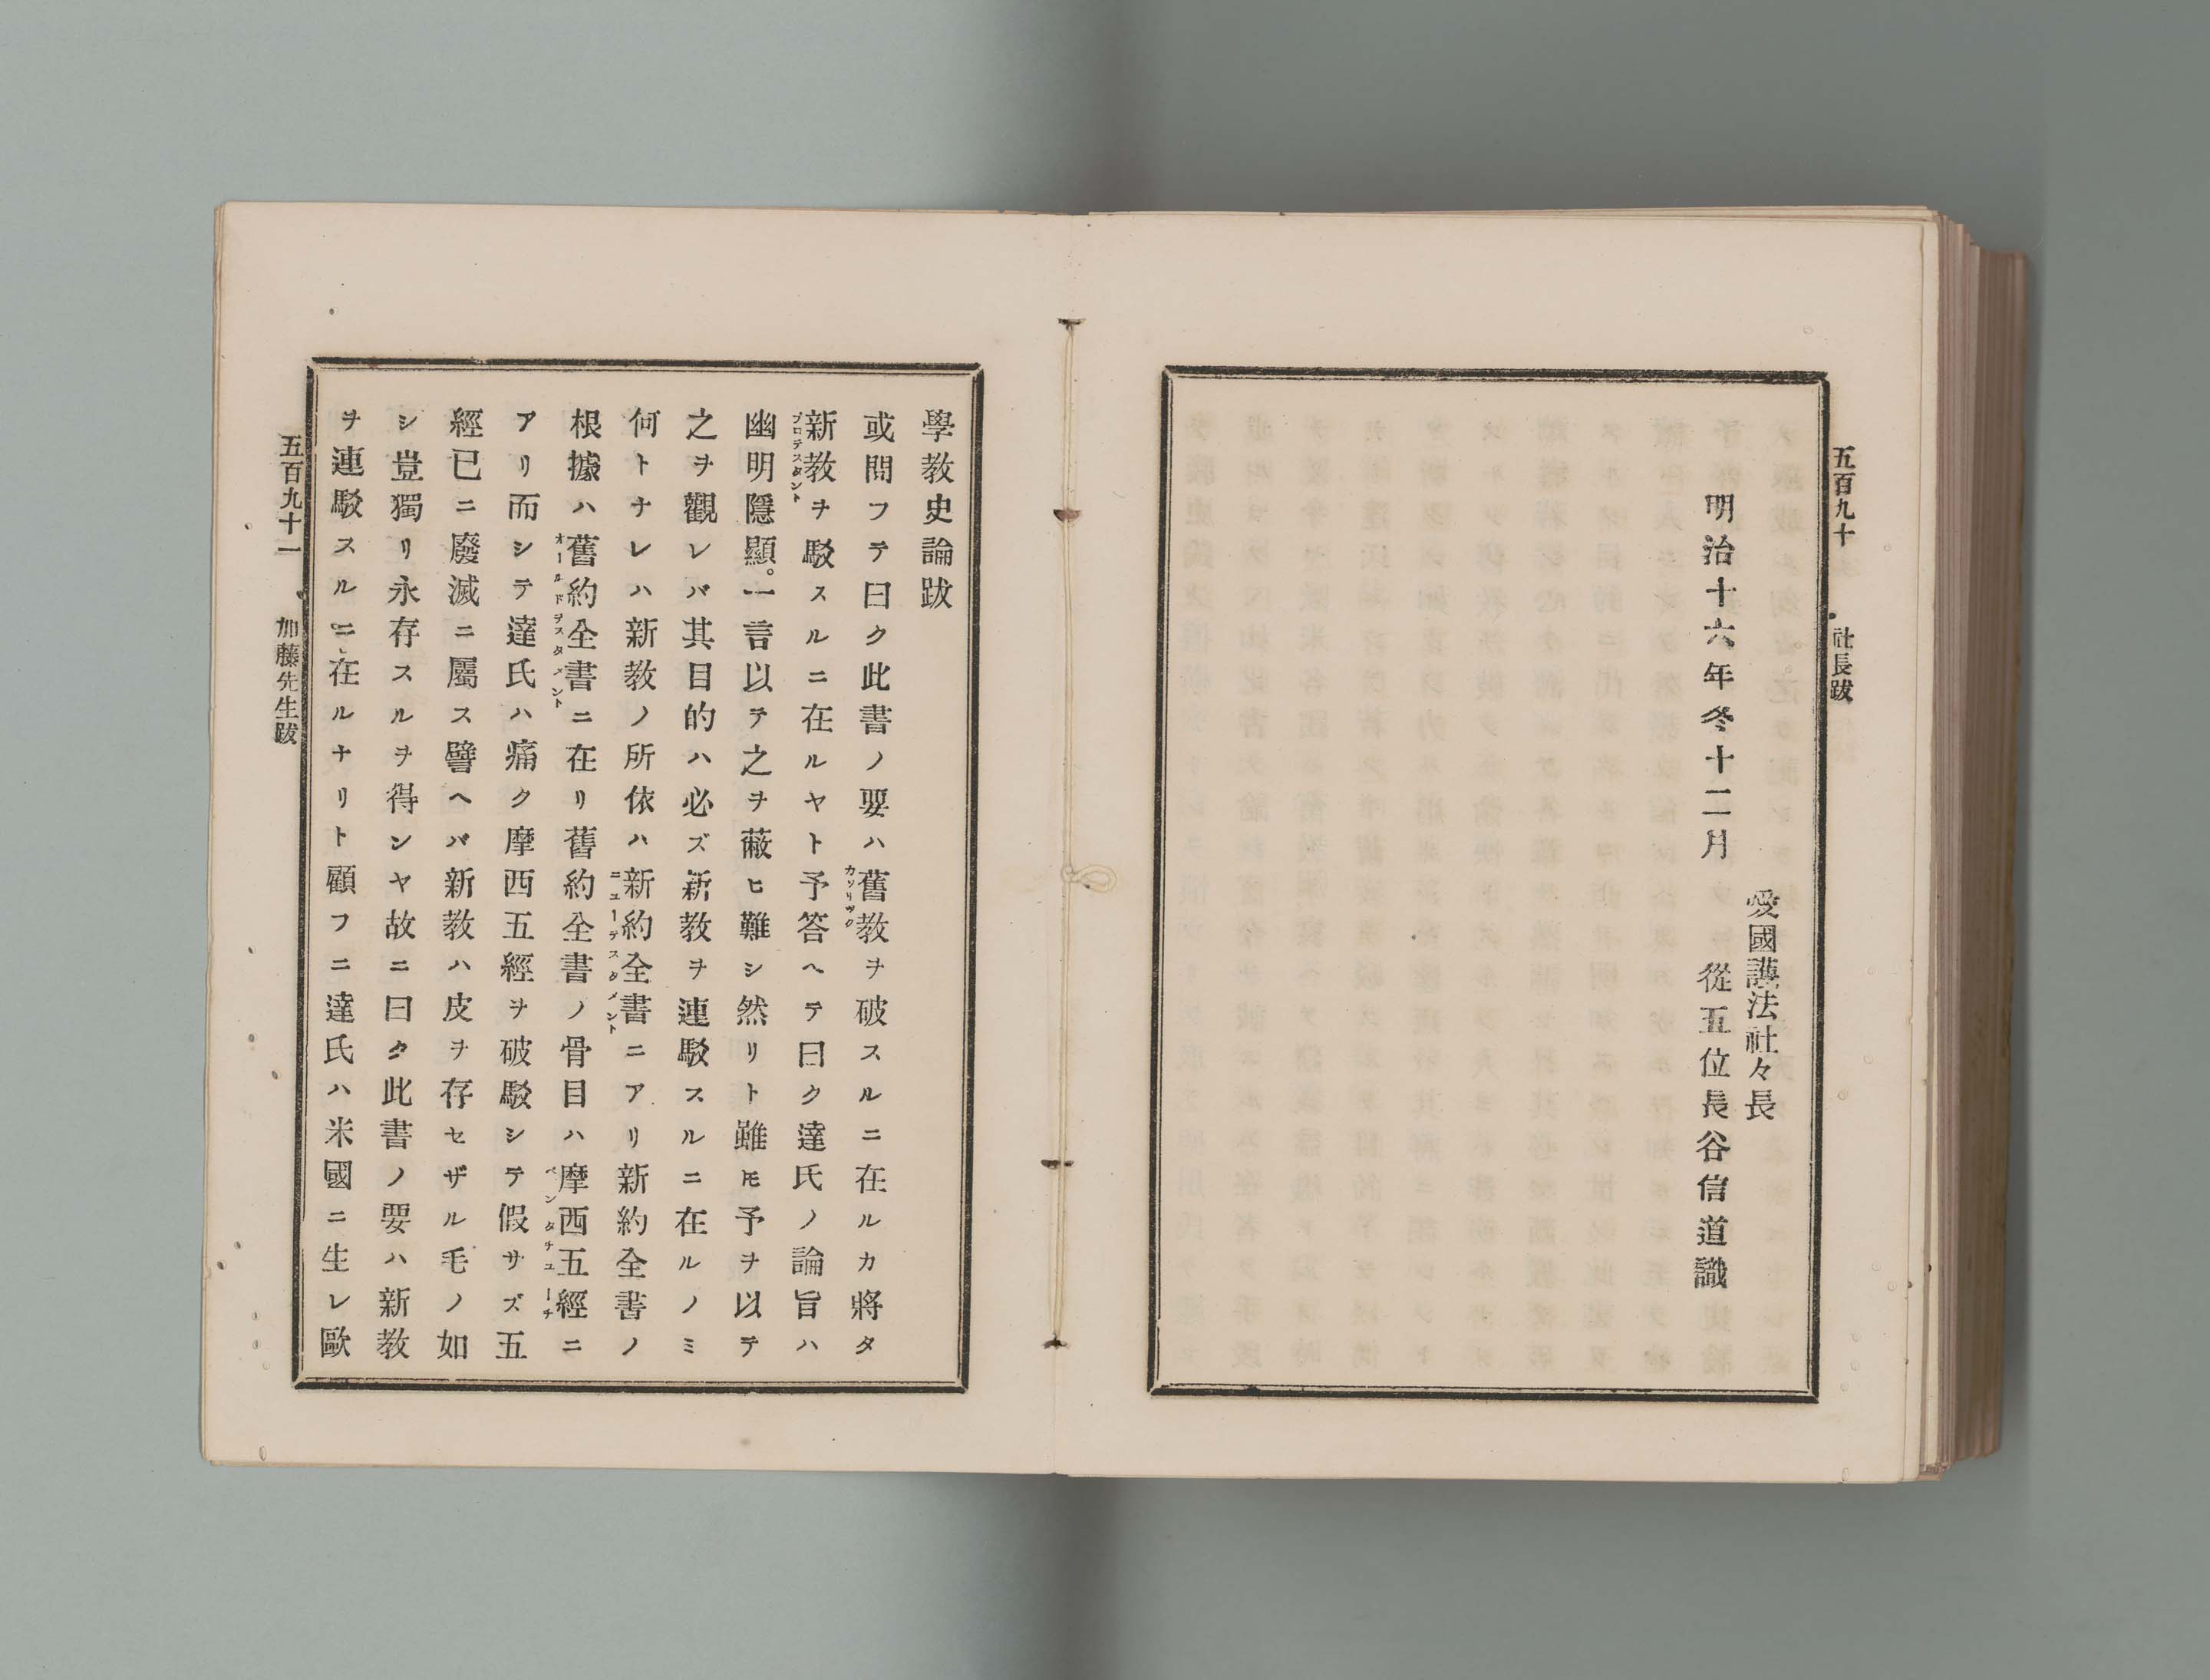 五百九十 社長跋
明治十六年冬十二月
愛國護法社々長
從五位長谷信道識
學教史論跋
或問フテ曰ク此書ノ要ハ舊教ヲ破スルニ在ルカ將タ
カソリツク
新教ヲ駁スルニ在ルヤト予答ヘテ曰ク達氏ノ論旨ハ
プロテスタント
幽明隱顯。一言以テ之ヲ蔽ヒ難シ然リト雖𪜈予ヲ以テ
之ヲ觀レバ其目的ハ必ズ新教ヲ連駁スルニ在ルノミ
何トナレハ新教ノ所依ハ新約全書ニアリ新約全書ノ
ニユーテスタメント
根據ハ舊約全書ニ在リ舊約全書ノ骨目ハ摩西五經ニ
オールドヲスタメント
ペンタチユーチ
アリ而シテ達氏ハ痛ク摩西五經ヲ破駁シテ假サズ五
經已ニ廢滅ニ屬ス譬ヘバ新教ハ皮ヲ存セザル毛ノ如
シ豈獨リ永存スルヲ得ンヤ故ニ曰ク此書ノ要ハ新教
ヲ連駁スルニ在ルナリト顧フニ達氏ハ米國ニ生レ歐
五百九十一 加藤先生跋